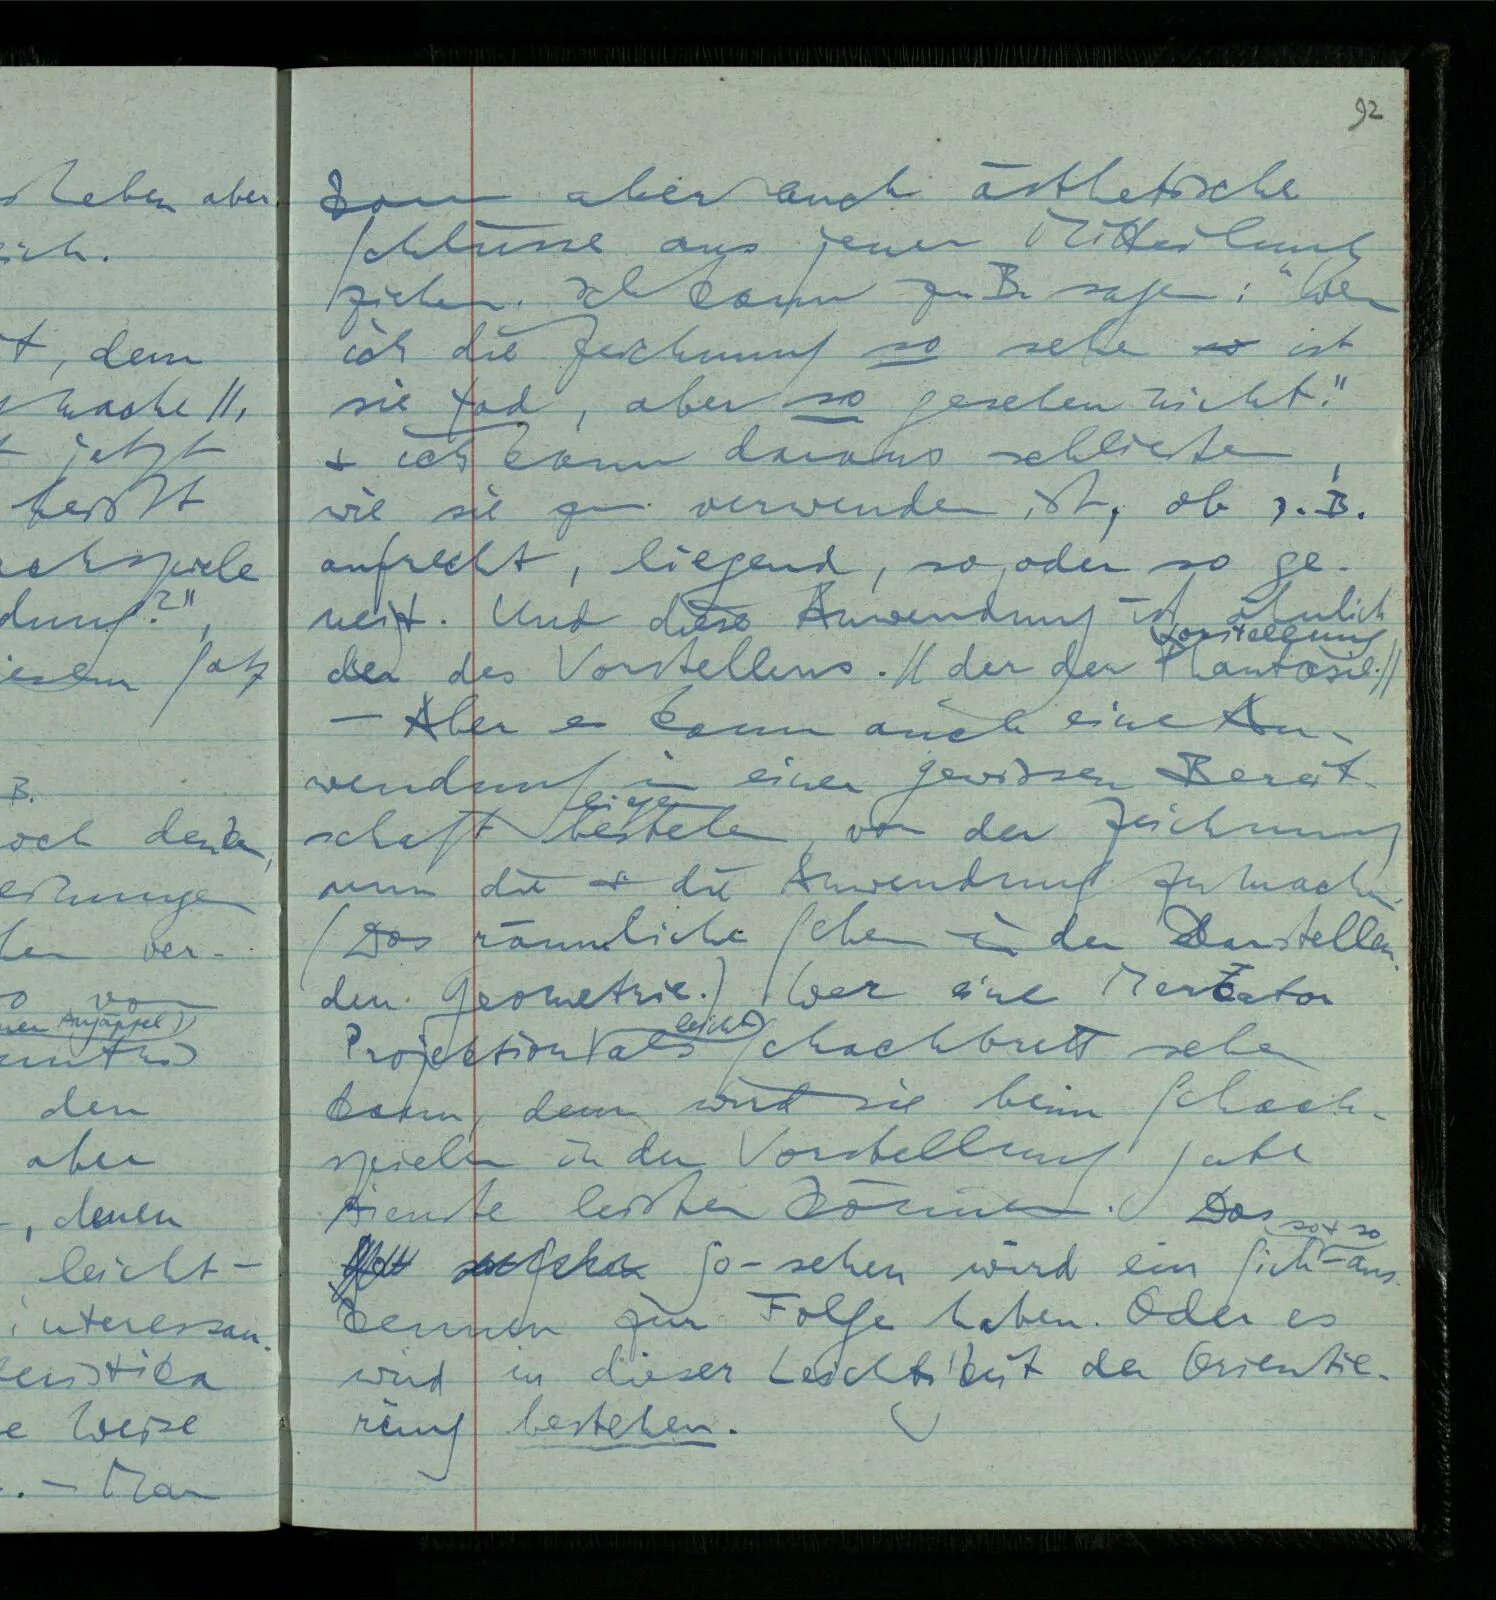 92
leben aber
sich.
t, dem
mache //,
t jetzt
heißt
spiele
dung?",
Satz
B.
och denken,
ver-
o von
den
aber
, denen
leicht-
interessan-
e Weise
. – Man
kann aber auch ästhetische
Schlüsse aus jener Mitteilung
ziehen. Ich kann z.B. sagen: "Wen
ich die Zeichnung so sehe so ist
sie tod, aber so gesehen nicht."
+ ich kann daraus schließen,
wie sie zu verwenden ist, ob z.B.
aufrecht, liegend, so oder so ge-
neigt. Und diese Anwendung ist ähnlich
Vorstellung
der des Vorstellens. // der der Phantasie. //
– Aber es kann auch eine An-
wendung in einer gewissen Bereit-
liegen
schaft bestehen von der Zeichnung
nun die + die Anwendung zu machen.
(Das räumliche Sehen in der Darstellen-
den Geometrie.) Wer eine Merkator
leicht
Projektion als Schachbrett sehen
kann, dem wird sie beim Schach-
spielen in der Vorstellung gute
Dienste leisten können. Das
so + so
So-sehen wird ein Sich-aus-
kennen zur Folge haben. Oder es
wird in dieser Leichtigkeit der Orientie-
rung bestehen.